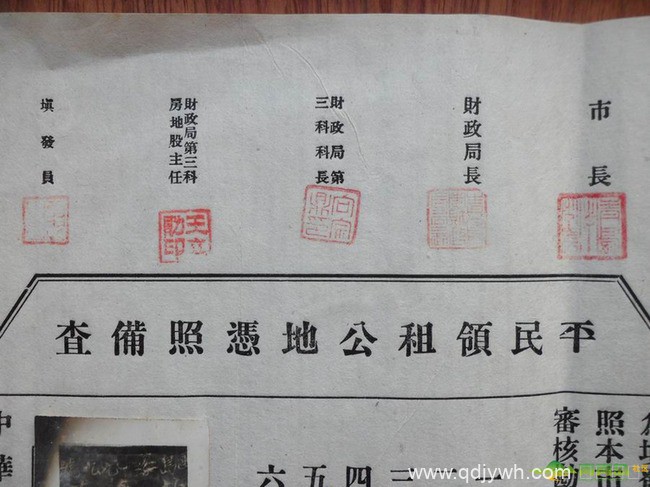 市長
財政局長
財政局第
三科科長
財政局第三科
房地股主任
填發員
平民領租公地憑照備查
照本
審核
三四五六
中華
www.qdjywh.com